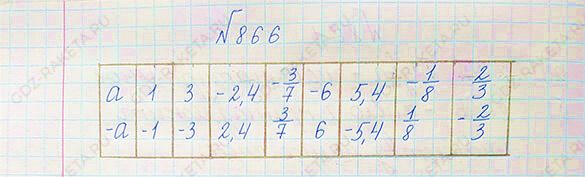 №866
a 1 3 -2,4 -3/7 -6 5,4 -1/8 2/3
-a -1 -3 2,4 3/7 6 -5,4 1/8 -2/3
GDZ-RAKETA.RU